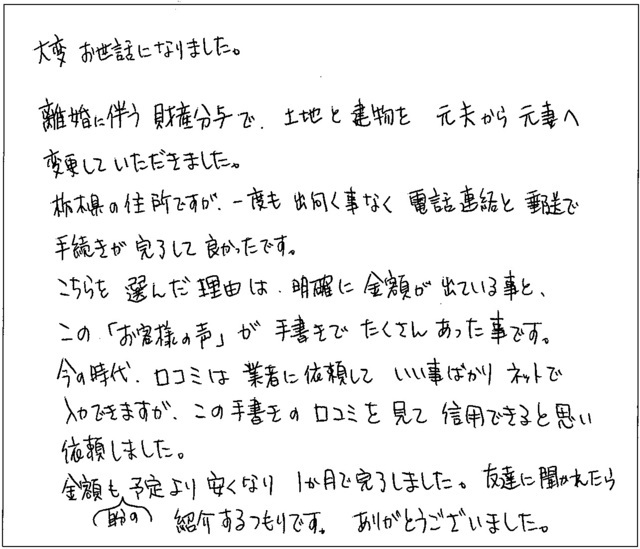 大変 お世話になりました。
離婚に伴う 財産分与で、土地と建物を 元夫から元妻へ
変更していただきました。
栃木県の住所ですが、一度も 出向く事なく 電話連絡と郵送で
手続きが 完了して 良かったです。
こちらを 選んだ理由は、明確に 金額が 出ている事と、
この「お客様の声」が 手書きで たくさん あった事です。
今の時代、口コミは 業者に依頼して いい事ばかり ネットで
入力できますが、この手書きの 口コミを 見て 信用できると思い
依頼しました。
金額も 予定より 安くなり 1か月で完了しました。友達に聞かれたら
紹介するつもりです。ありがとうございました。